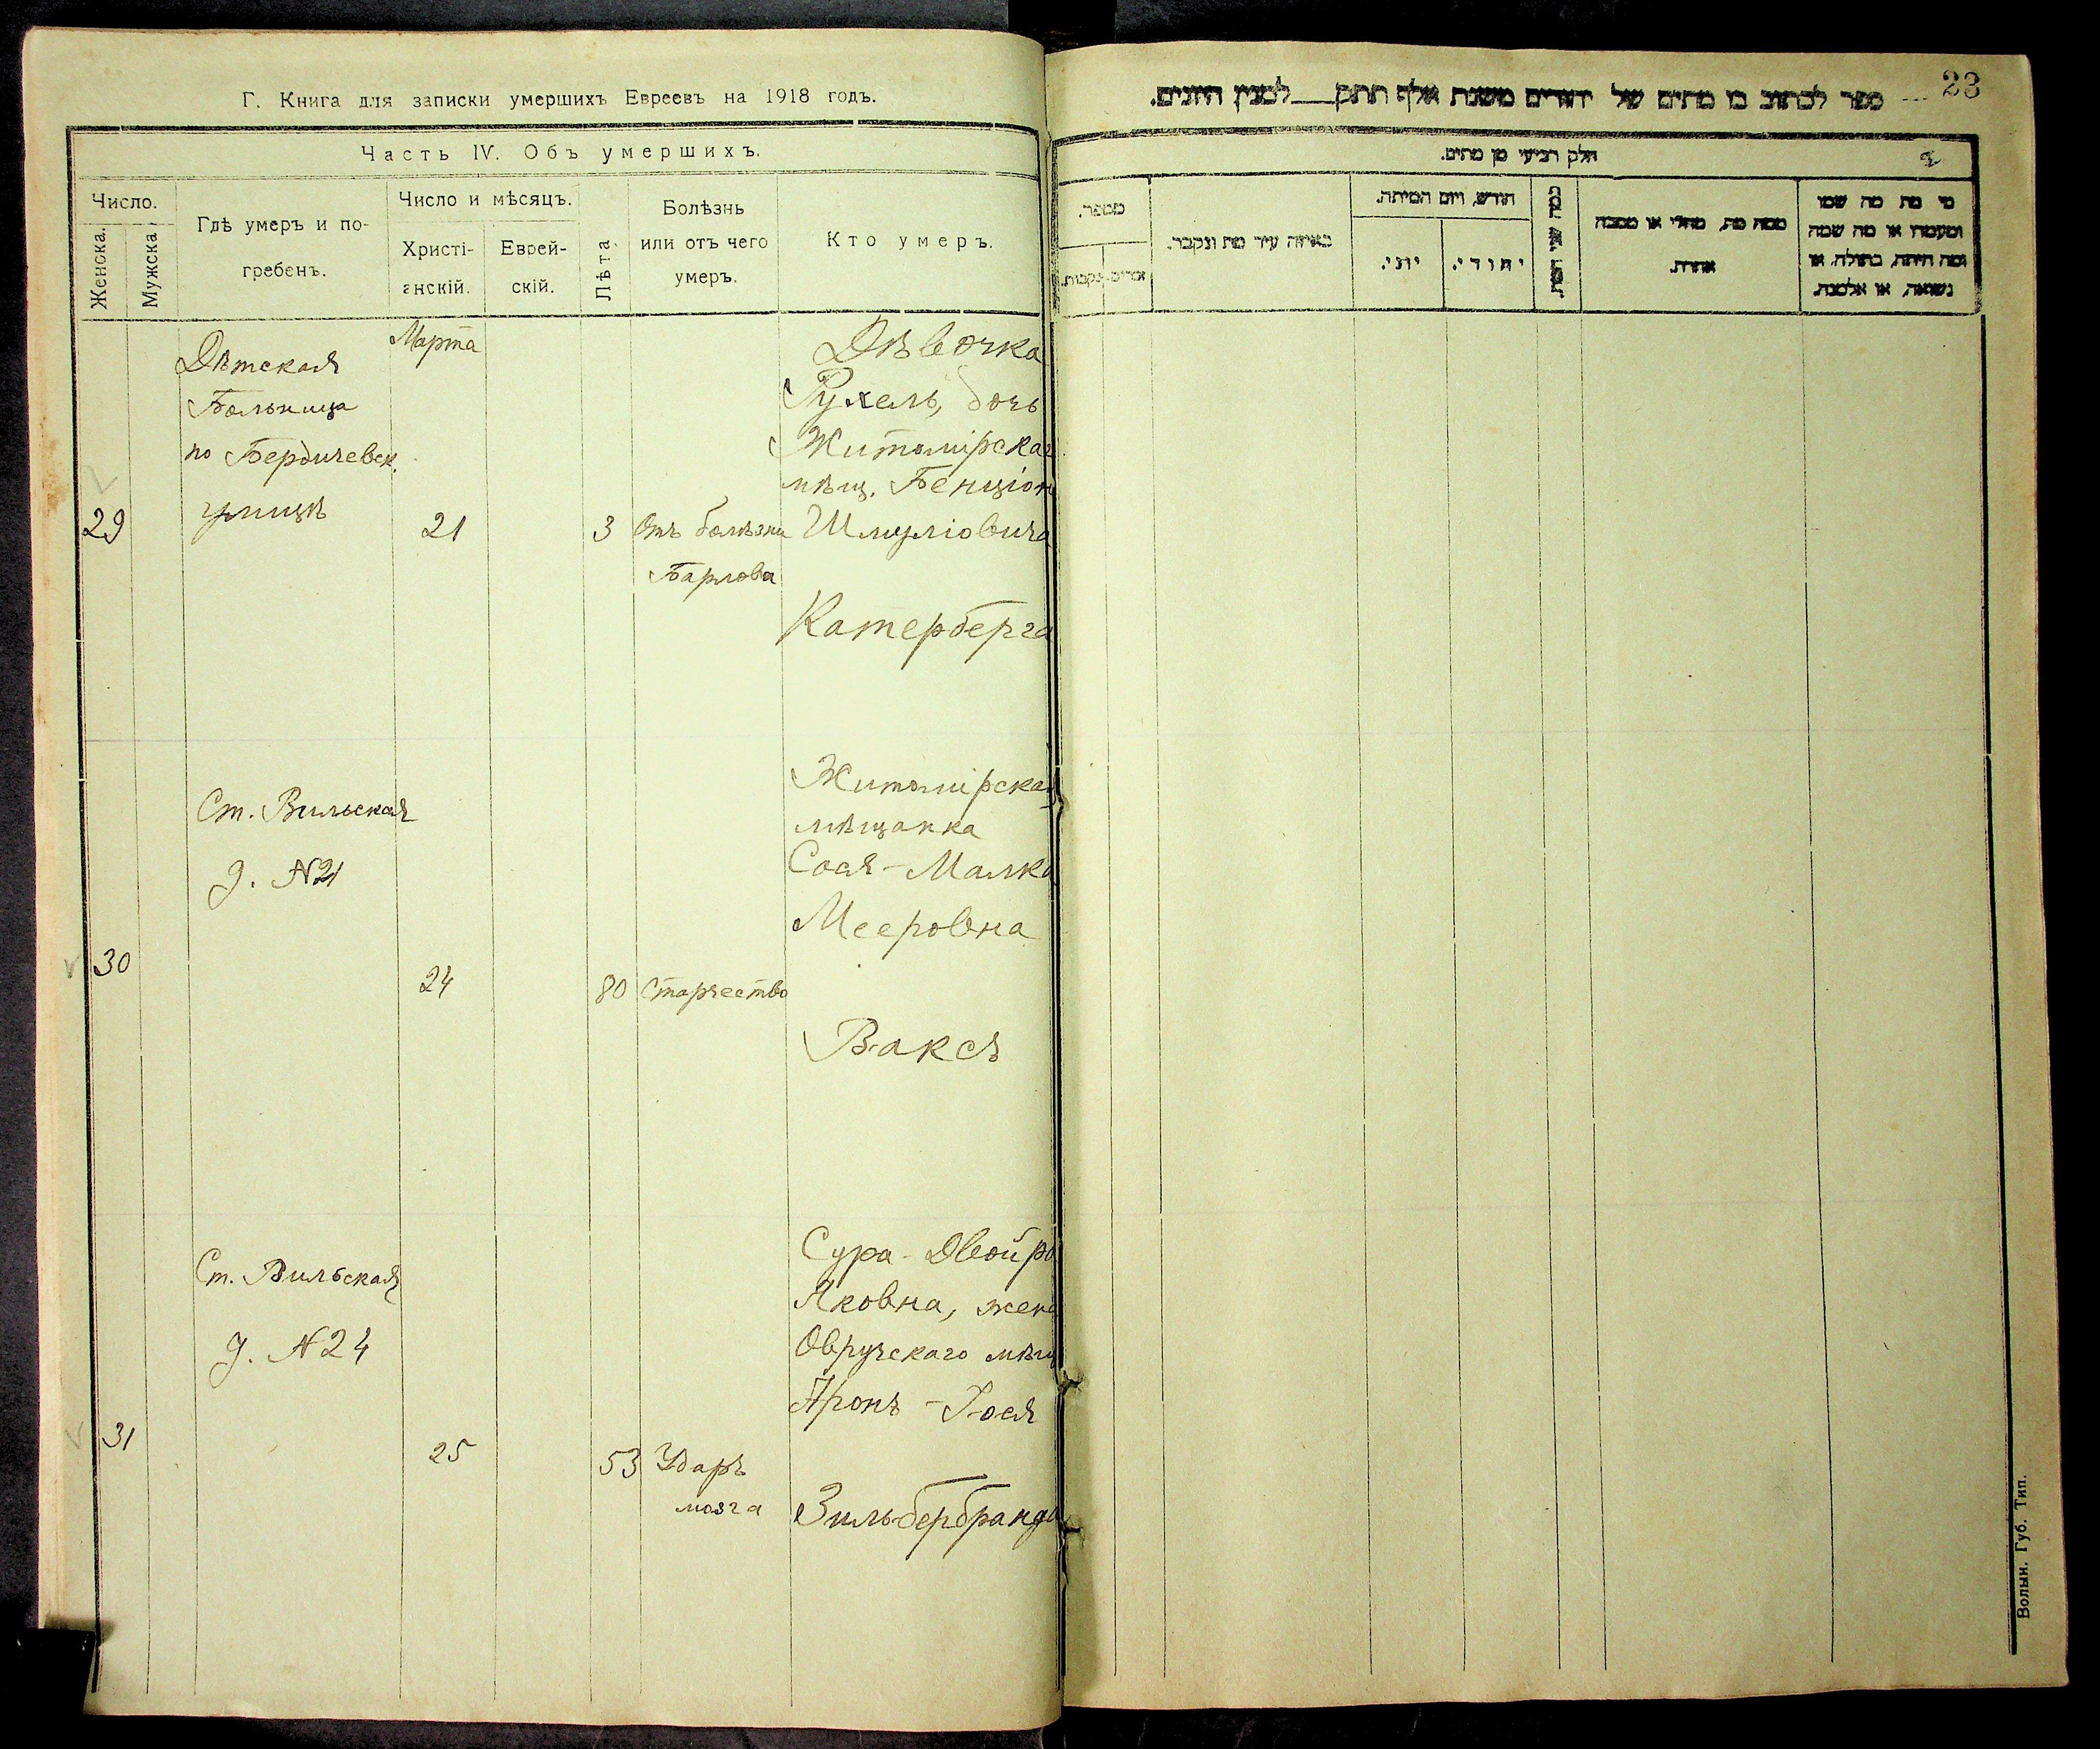 Г. Книга для записки умершихъ Евреевъ на 1918 годъ.
Часть IV. Объ умершихъ.
Число.
Женска.
Мужска
Гдѣ умеръ и по-
гребенъ.
Число и мѣсяцъ.
Христі-
анскій.
Еврей-
скій.
Лѣта.
Болѣзнь
или отъ чего
умеръ.
Кто умеръ.
29
Дѣтская
Больница
по Бердичевск.
улицѣ
Марта
21
3
Отъ болѣзни
Барлова
Дѣвочка
Рухель, дочь
Житомірскаг
мѣщ. Бенціон
Шмуліовича
Катерберга
30
Ст. Вильская
д. №21
24
80
Старчество
Житомірская
мѣщанка
Сося-Малка
Мееровна
Ваксъ
31
Ст. Вильская
д. №24
25
53
Ударъ
мозга
Сура-Двойра
Яковна, жена
Овручскаго мѣщ
Аронъ-Іося
Зильбербранда
23
ספר לכתוב בו מתים של יהודים משנת אלף תתק___ למנין היונים.
חלק רביעי מן מתים.
מספר.
נקבות.
באיזה עיר מת ונקבר.
חודש, ויום המיתה.
יוני.
יהודי.
ממה מת, מחלי או מסבה
אחרת.
מי מת מה שמו
ומעמדו או מה שמה
ומה היתה, בתולה, או
נשואה, או אלמנה.
Волын. Губ. Тип.